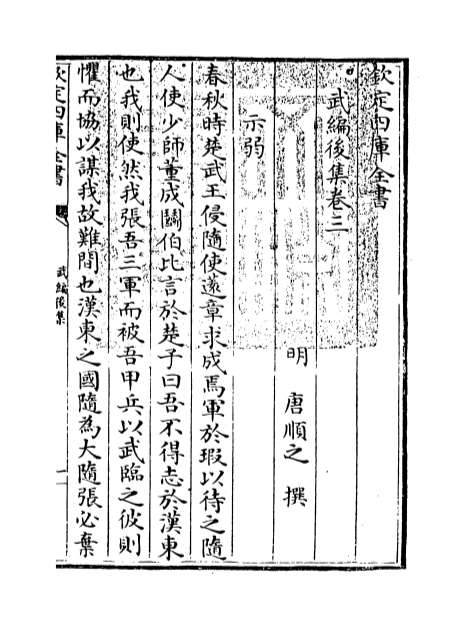 欽定四庫全書
武編後集卷三
明　唐順之　撰
示弱
春秋時楚武王侵隨使薳章求成焉軍於瑕以待之隨
人使少師董成鬭伯比言於楚子曰吾不得志於漢東
也我則使然我張吾三軍而被吾甲兵以武臨之彼則
懼而協以謀我故難間也漢東之國隨為大隨張必棄
欽定四庫全書
武編後集
一